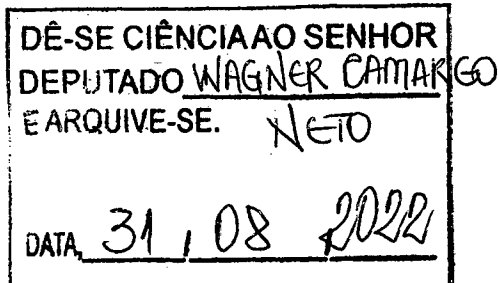 DÊ-SE CIÊNCIA AO SENHOR
DEPUTADO WAGNER CAMARGO
E ARQUIVE-SE. NETO
DATA, 31 / 08 2022